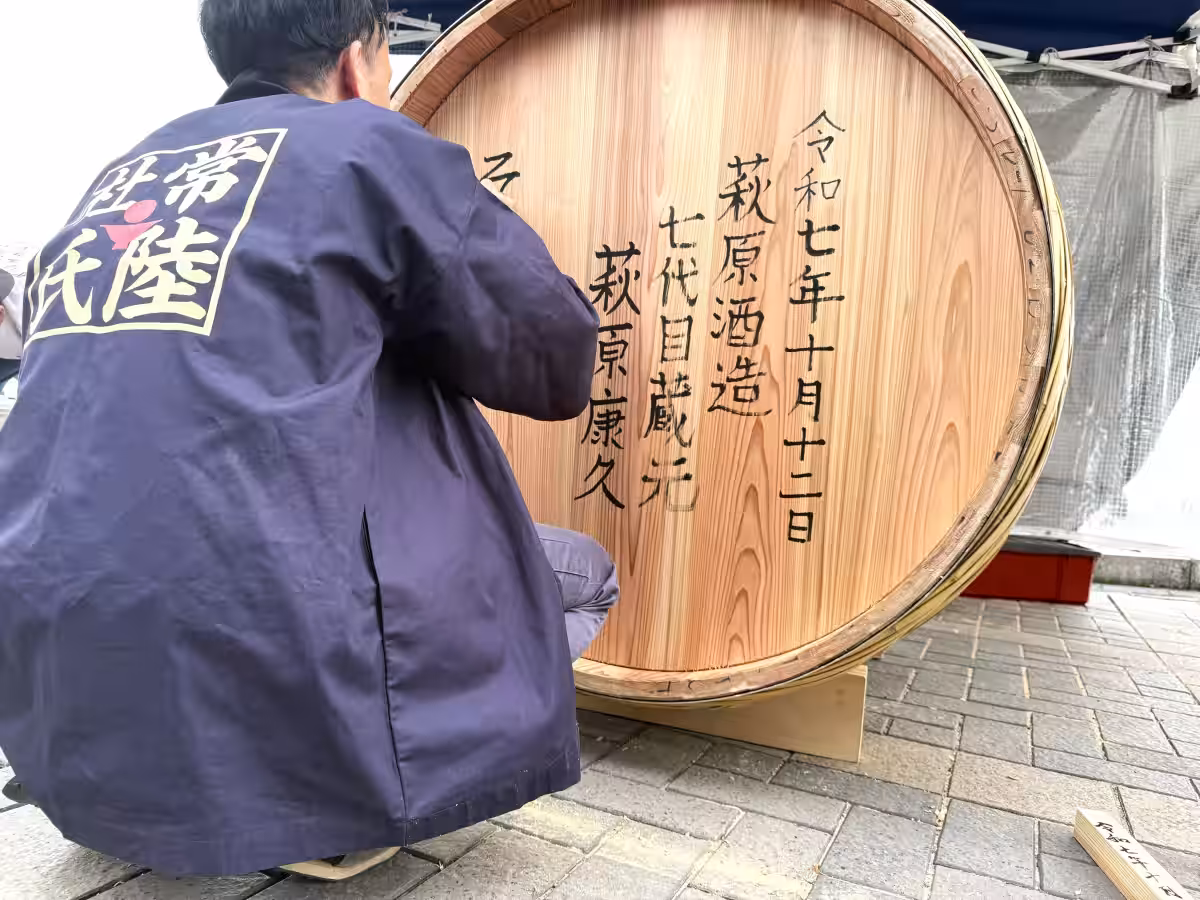 令和七年十月十二日
萩原酒造
七代目蔵元
萩原康久
常陸
杜氏